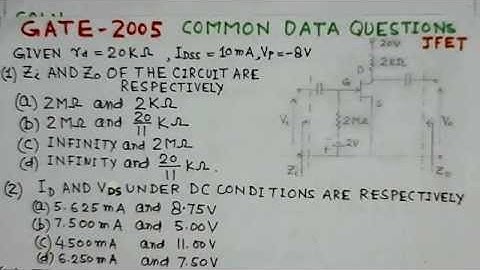 GATE-2005 COMMON DATA QUESTIONS
JFET
GIVEN rd = 20KΩ, IDSS = 10mA, VP = -8V
(1) Zi AND Zo OF THE CIRCUIT ARE
RESPECTIVELY
(a) 2MΩ and 2KΩ
(b) 2MΩ and 20/11 KΩ
(c) INFINITY and 2MΩ
(d) INFINITY and 20/11 KΩ.
20V
2KΩ
D
G
S
Vi
2MΩ
Vo
2V
Zi
Zo
(2) ID AND VDS UNDER DC CONDITIONS ARE RESPECTIVELY
(a) 5.625mA and 8.75V
(b) 7.500mA and 5.00V
(c) 4.500mA and 11.00V
(d) 6.250mA and 7.50V